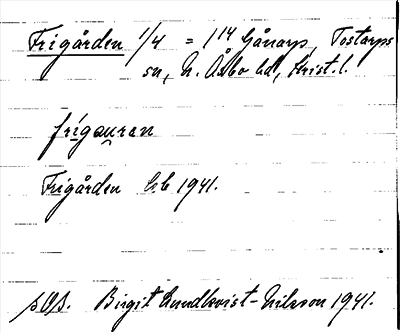 Frigården 1/4 = 1¹⁴ Gånarp, Tostarps
sn, N. Åsbo hd, Krist. l.
frígau̯ran
Frigården Eb 1941.
Birgit Lundkvist-Nilsson 1941.